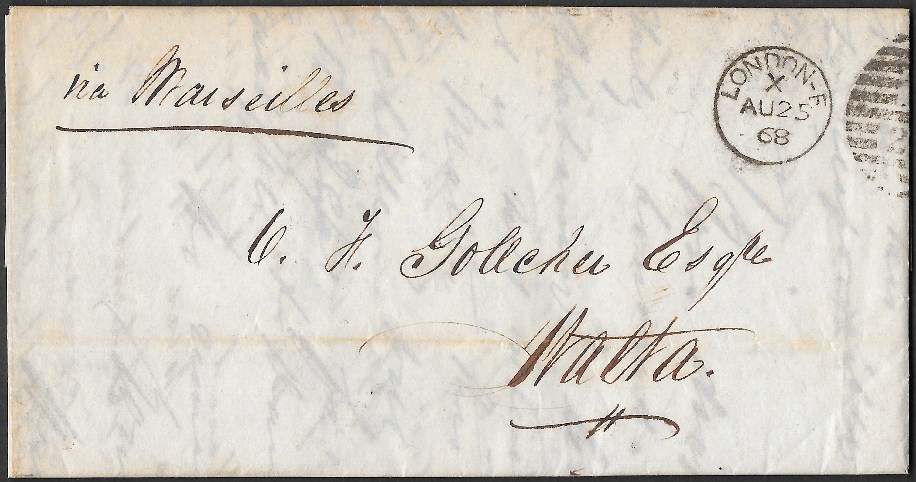 via Marseilles
LONDON-F
X
AU 25
68
2
C. F. Gollcher Esqre
Malta.